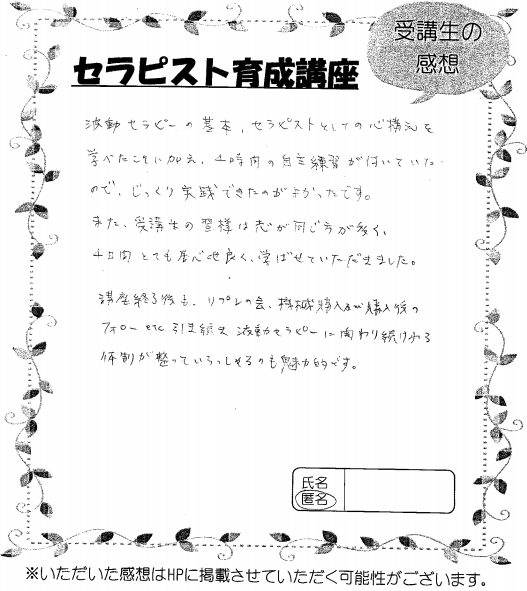 受講生の
感想
セラピスト育成講座
波動セラピーの基本、セラピストとしての心構えを
学べたことに加え、4時間の自主練習が付いていた
ので、じっくり実践できたのがよかったです。
また、受講生の皆様は志が同じ方が多く、
4日間とても居心地良く、学ばせていただきました。
講座終了後も、リプレの会、機械購入
購入後の
フォローetc 引き続き波動セラピーに関わり続けれる
体制が整っていらっしゃるのも魅力的です。
氏名
匿名
※いただいた感想はHPに掲載させていただく可能性がございます。